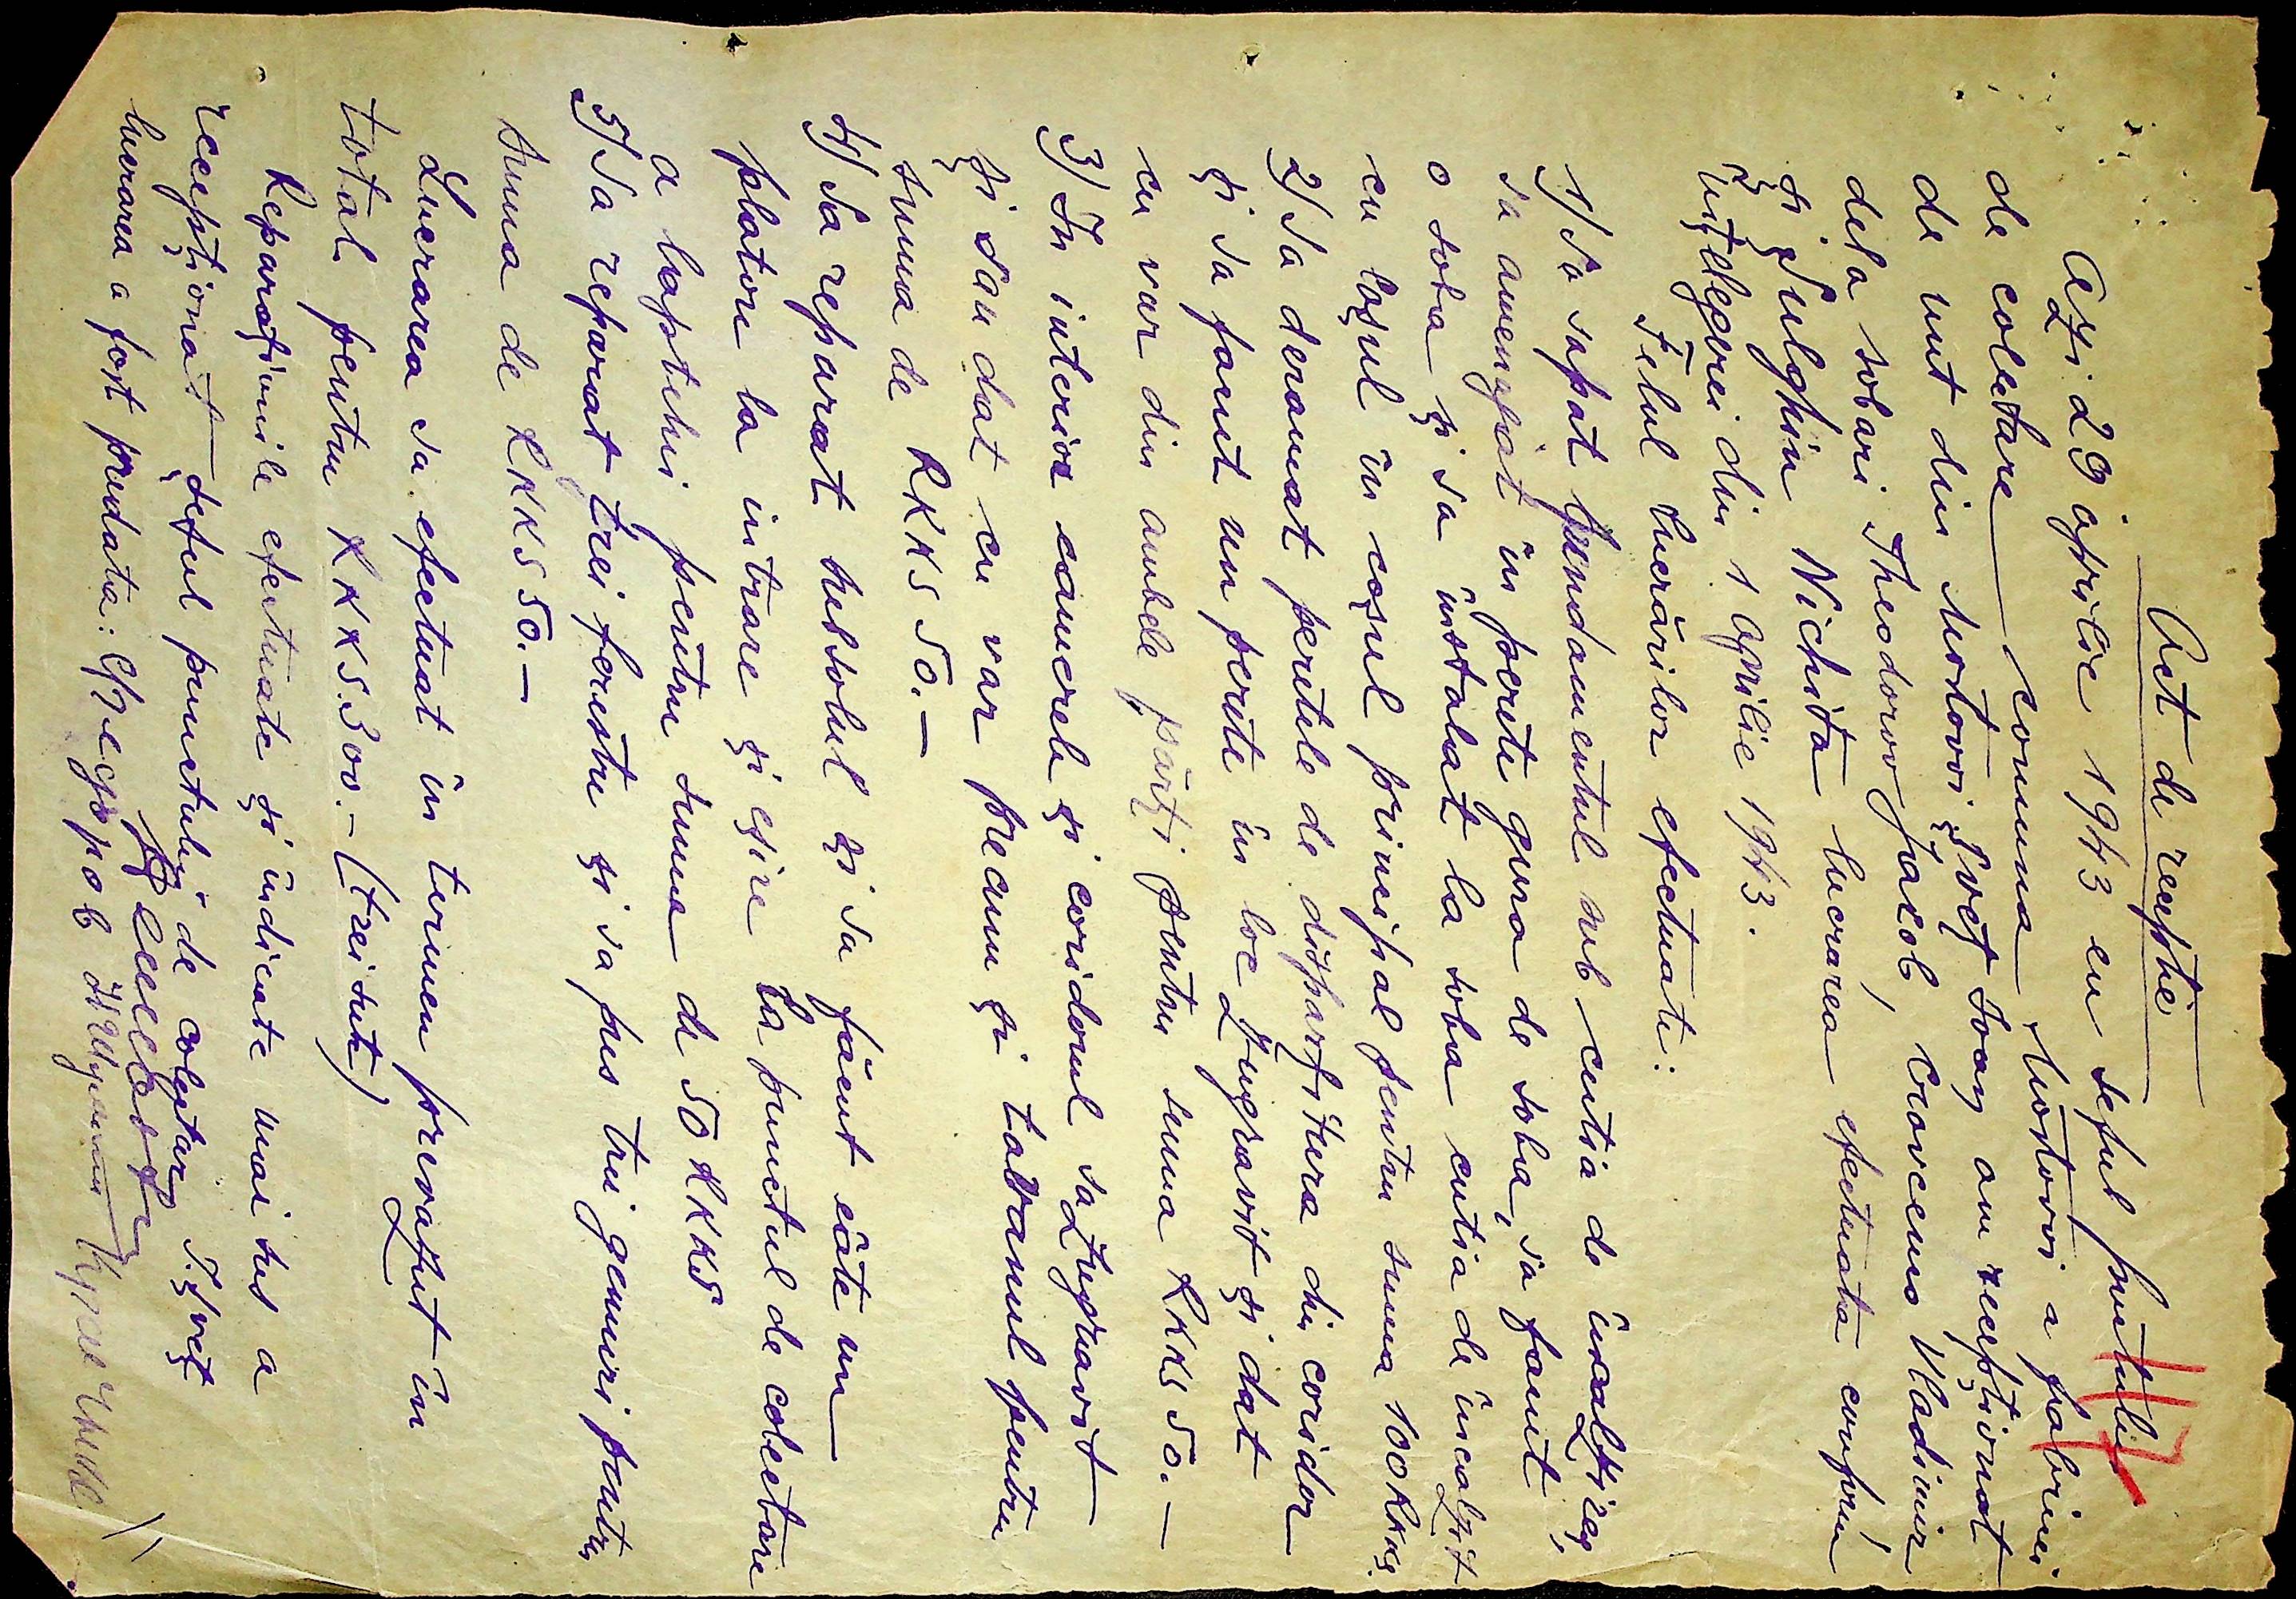 Act de recepție
Azi 29 aprilie 1943 eu șeful punctului
de colectare comuna Mostovoi a fabricei
de unt din Mostovoi Șveț Ioan am recepționat
dela sobari Theodorov Jacob, Cravcenco Vladimir
și Sulghin Nichita lucrarea efectuata conform
ințelegerei din 1 Aprilie 1943.
Felul lucrărilor efectuate:
1/ Sa sapat fundamentul sub cutia de încalzirea,
sa amenajat in perete gura de soba, sa facut
o soba și sa instalat la soba cutia de incalzit
cu coșul in coșul principal pentru suma 100 RKKS.
2/ Sa deramat peretele de disparțitura din coridor
și sa facut un perete in loc Zugravit și dat
cu var din ambele părți pentru suma RKKS 50.—
3/ In interior camerele și coridorul sa Zugravit
și sau dat cu var precum și tavanul pentru
suma de RKKS 50.—
4/ Sa reparat subsolul și sa făcut câte un
platou la intrare și eșire la punctul de colectare
a laptelui pentru suma de 50 RKKS
5/ Sa reparat trei ferestre și sa pus trei gemuri pentru
suma de RKKS 50.—
Lucrarea sa efectuat în termen prevazut in
total pentru RKKS. 300.— (trei sute)
Reparațiunile efectuate și indicate mai sus a
recepționat șeful punctului de colectare I. Șveț
lucrarea a fost predata: